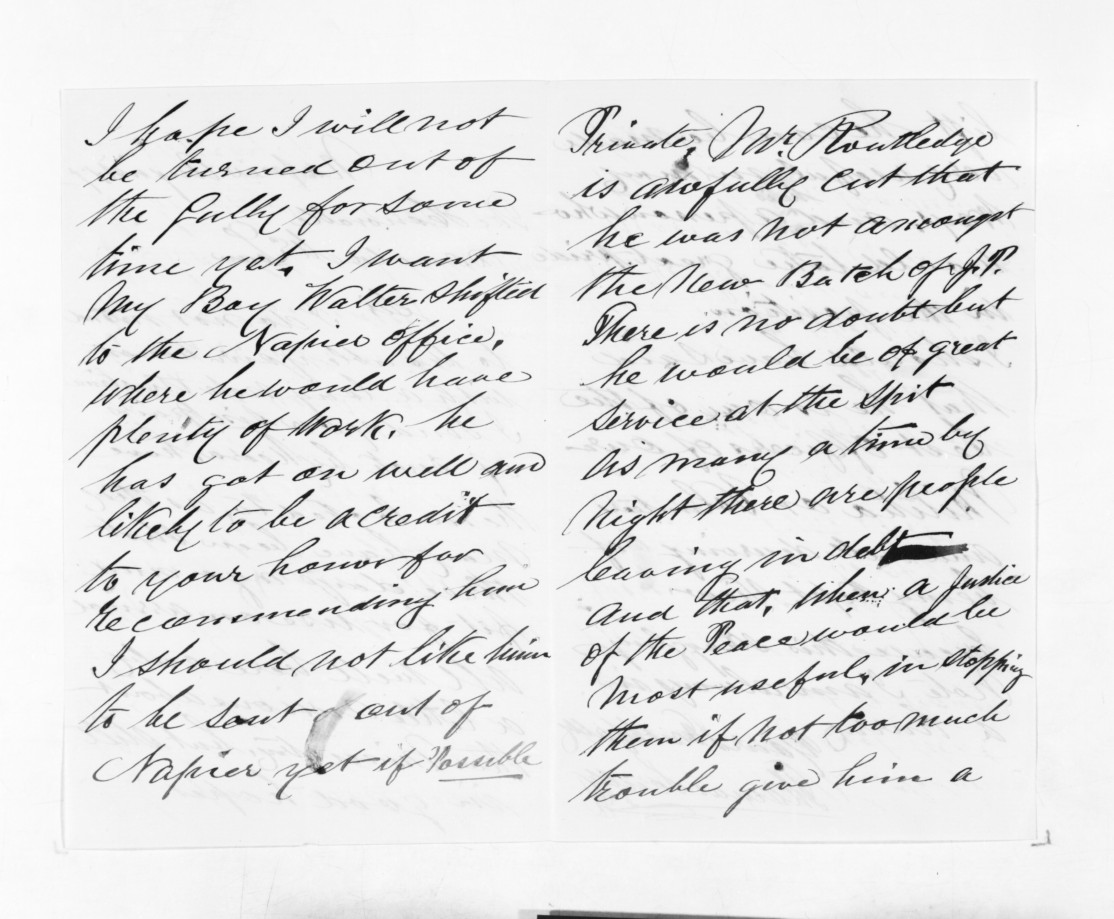 I hope I will not
be turned out of
the Gully for some
time yet. I want
My Boy Walter shifted
to the Napier office,
where he would have
plenty of Work. he
has got on well and
likely to be a credit
to your honor for
recommending him
I should not like him
to be sent out of
Napier yet if Possible
Private, Mr. Routledge
is awfully cut that
he was not amongst
the New Batch of J.P.
There is no doubt but
he would be of great
service at the Spit
as many a time by
Night there are people
leaving in debt
and that, when a Justice
of the Peace would be
most useful, in stopping
them if not too much
trouble give him a